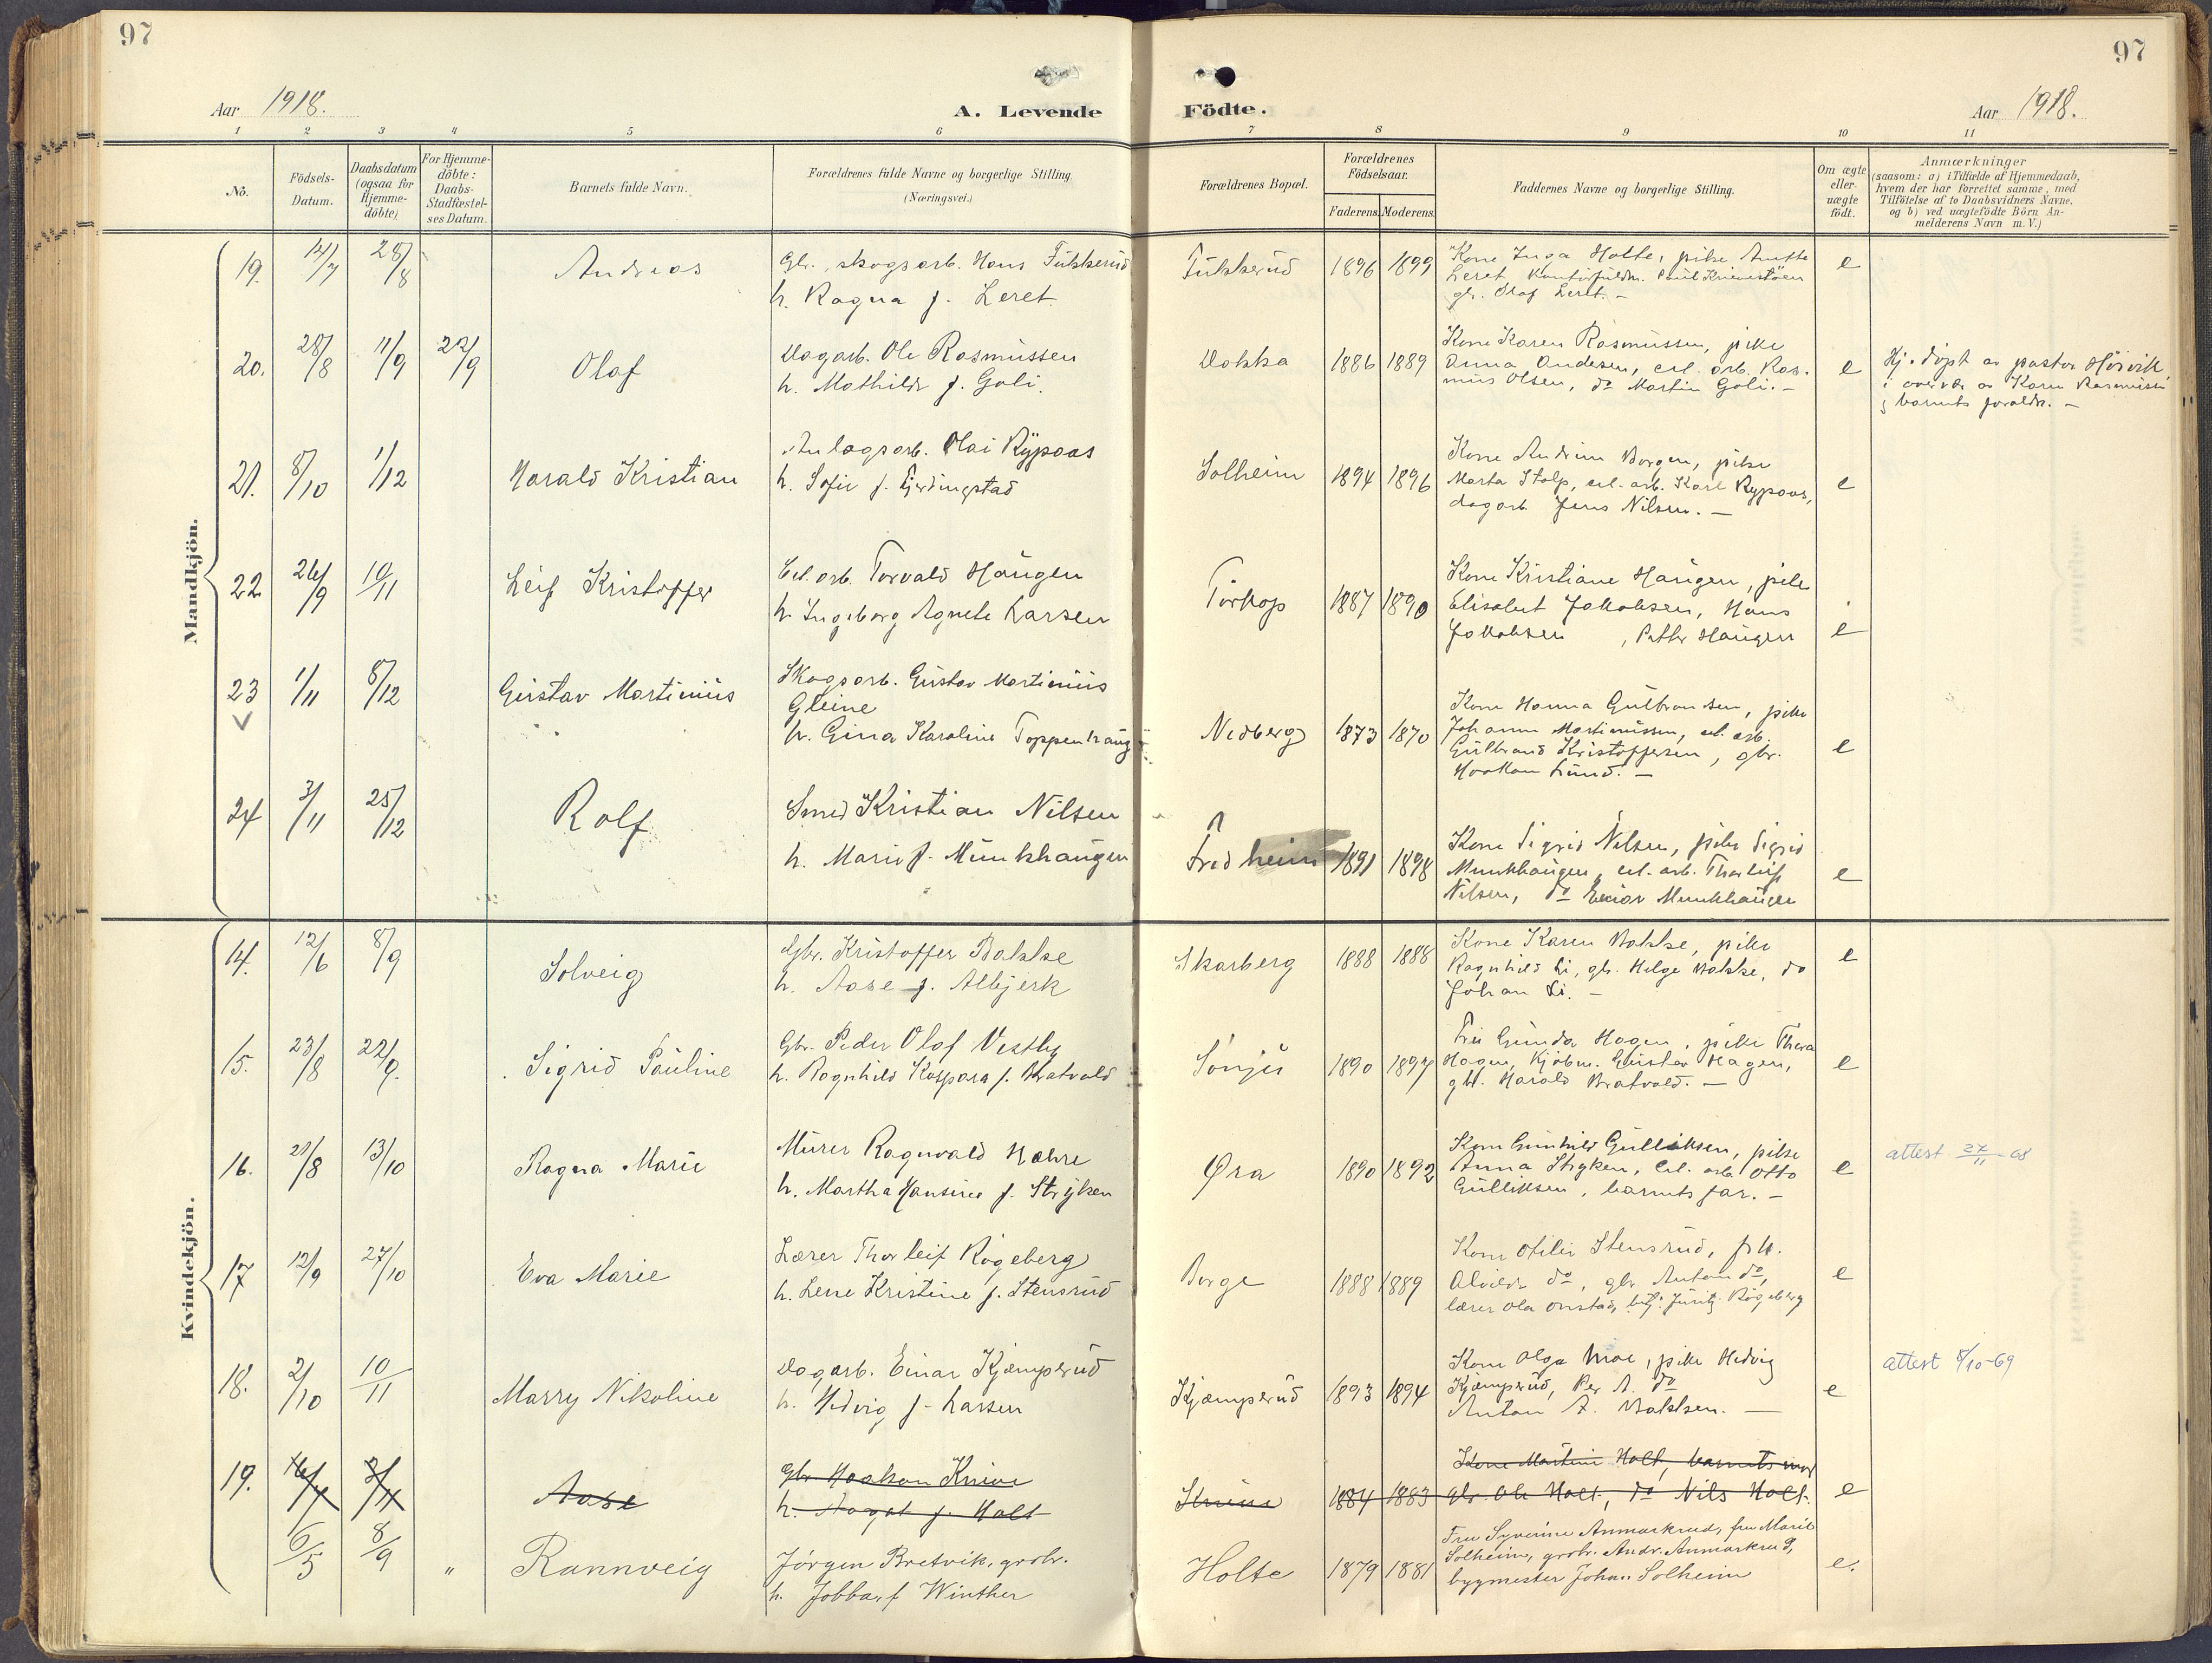 97
97
Aar 1918.
A. Levende Födte.
Aar 1918.
1 2 3 4 5 6 7 8 9 10 11
No.
Födsels-
Datum.
Daabsdatum
(ogsaa for
Hjemme-
döbte)
For Hjemme-
döbte:
Daabs-
Stadfæstel-
ses Datum.
Barnets fulde Navn.
Forældrenes fulde Navne og borgerlige Stilling.
(Næringsvei.)
Forældrenes Bopæl.
Forældrenes
Födselsaar.
Faderens. Moderens.
Faddernes Navne og borgerlige Stilling.
Om ægte
eller
uægte
födt.
Anmærkninger
(saasom: a) i Tilfælde af Hjemmedaab,
hvem der har forrettet samme, med
Tilföielse af to Daabsvidners Navne.
og b) ved uægtefödte Börn An-
melderens Navn m.V.)
Mandkjön.
19. 14/7 28/8 Andreas
Gbr., skogsarb. Hans Fukkerud
h. Ragna f. Leret.
Fukkerud 1896 1899
Kone Inga Holte, pike Anette
Leret,
gbr. Olaf Leret. —
e
20. 28/8 11/9 22/9 Olaf
Dagarb. Ole Rasmussen
h. Mathilde f. Goli.
Dokka 1886 1889
Kone Karen Rasmussen, pike
Anna Andersen, erl. arb. Ras-
mus Olsen, do Martin Goli. —
e
Hj. døpt av pastor Hørvik
i overvær av Karen Rasmussen
g barnets foreldre. —
21. 8/10 1/12 Harald Kristian
Anlagsarb. Olai Rypaas
h. Sofie f. Gjerdingstad
Solheim 1894 1896
Kone Andrine Borgen, pike
Marta Stolp, erl. arb. Karl Rypaas,
dagarb. Jens Nilsen. —
e
22 26/9 10/11 Leif Kristoffer
Erl. arb. Torvald Haugen
h. Ingeborg Agnete Larsen
Torkop 1887 1890
Kone Kristiane Haugen, pike
Elisabet Jakobsen, Hans
Jakobsen, Petter Haugen
e
23 1/11 8/12 Gustav Martinius
Skogsarb. Gustav Martinius
Gleine
h. Gina Karoline Toppenhaug
Nedberg 1873 1870
Kone Hanna Gulbransen, pike
Johanne Martinussen, erl. arb.
Gulbrand Kristoffersen, gbr.
Haakon Lund. —
e
24 3/11 25/12 Rolf
Smed Kristian Nilsen
h. Marie f. Munkhaugen
Fredheim 1891 1898
Kone Sigrid Nilsen, pike Sigrid
Munkhaugen, erl. arb. Thorleif
Nilsen, do Einar Munkhaugen
e
Kvindekjön.
14. 12/6 8/9 Solveig
Gbr. Kristoffer Bakke
h. Aase f. Albjerk
Skarberg 1888 1888
Kone Karen Bakke, pike
Ragnhild Li, gbr. Helge Bakke, do
Johan Li. —
e
15. 23/8 22/9. Sigrid Pauline
Gbr. Peder Olaf Vestby
h. Ragnhild Kaspara f. Bratvold
Sønju 1890 1897
Fru Gunda Hagen, pike Thora
Hagen, kjøbm. Gustav Hagen,
gbr. Harald Bratvold. —
e
16. 21/8 13/10 Ragna Marie
Murer Ragnvald Hæhre
h. Martha Hansine f. Stryken
Øra 1890 1892
Kone Gunhild Gulliksen, pike
Anna Stryken, erl. arb. Otto
Gulliksen, barnets far. —
e
attest 27/11-68
17 12/9 27/10 Eva Marie
Lærer Thorleif Røgeberg
h. Lene Kristine f. Stensrud
Borge 1888 1889
Kone Otilie Stensrud, pk.
Alvilde do, gbr. Anton do,
lærer Ola Onstad, Røgeberg
e
18. 2/10 10/11 Marry Nikoline
Dagarb. Einar Kjæmperud
h. Hedvig f. Larsen
Kjæmperud 1893 1894
Kone Olga Moe, pike Hedvig
Kjæmperud, Per A. do
Anton A. Bakksen. —
e
attest 8/10-69
19. Aase
Gbr. Haakon Knive
h. Aagot f. Holt
Knive 1884 1883
Kone Martine Holt, barnets mor
gbr. Ole Holt, do Nils Holt.
e
6/5 8/9 " Rannveig
Jörgen Bretvik, grobr.
h. Jobba f Winther
Holte 1879 1881
Fru Syverine Anmarkrud, fru Marie
Solheim, grobr. Andr. Anmarkrud,
bygmester Johan Solheim
e.